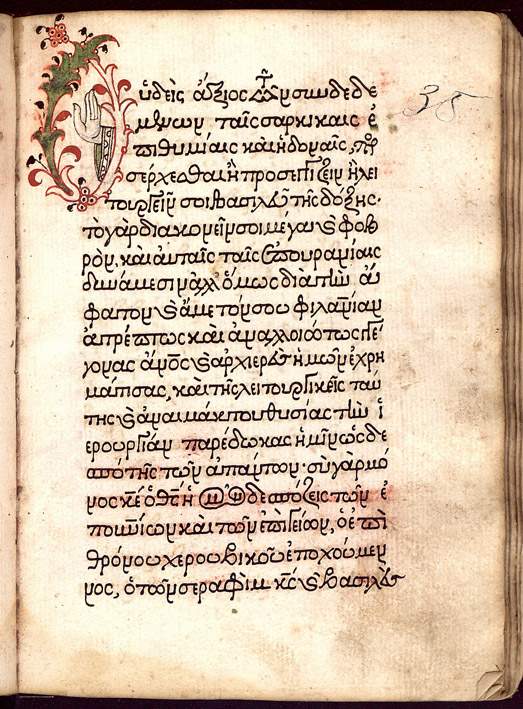 Οὐδεὶς ἄξιος τῶν συνδεδε
μένων ταῖς σαρκικαῖς ἐ
πιθυμίαις καὶ ἡδοναῖς, προ
σέρχεσθαι ἢ προσεγγίζειν ἢ λει
τουργεῖν σοι βασιλεῦ τῆς δόξης·
τὸ γὰρ διακονεῖν σοι μέγα καὶ φοβε
ρὸν, καὶ αὐταῖς ταῖς ἐπουρανίαις
δυνάμεσιν· ἀλλ' ὅμως διὰ τὴν ἄ
φατον καὶ ἄμετρόν σου φιλανίαν
ἀτρέπτως καὶ ἀναλλοιώτως γέ
γονας ἄνος καὶ ἀρχιερεὺς ἡμῶν ἐχρη
μάτισας, καὶ τῆς λειτουργικῆς ταύ
της καὶ ἀναιμάκτου θυσίας τὴν ἱ
ερουργίαν παρέδωκας ἡμῖν ὡς δε
σπότης τῶν ἁπάντων· σὺ γὰρ μό
νος κε ὁ θς ἡμῶν δεσπόζεις τῶν ἐ
πουνίων καὶ τῶν ἐπιγείων, ὁ ἐπὶ
θρόνου χερουβικοῦ ἐποχούμε
νος, ὁ τῶν σεραφὶμ κς καὶ βασιλεὺς
38